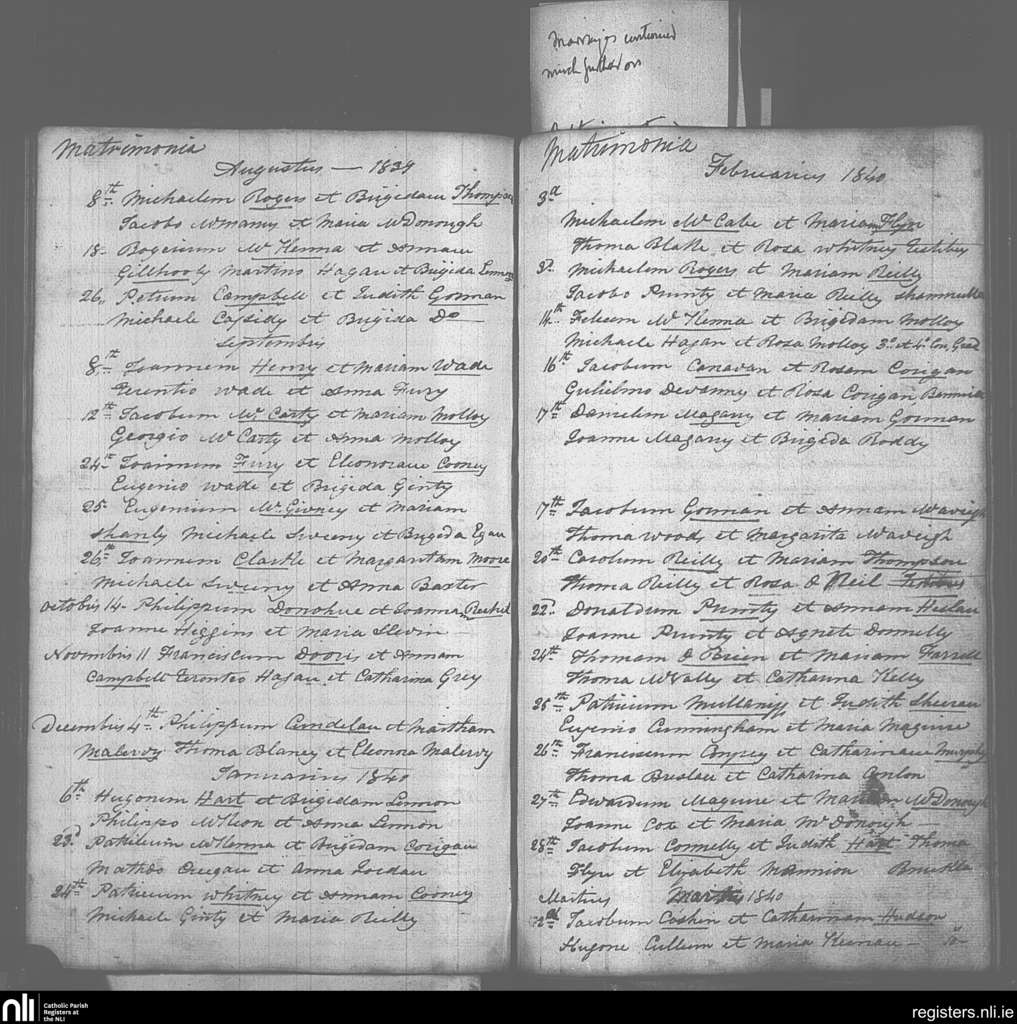 Marriages continued
much further on
Matrimonia
Augustus — 1839
8th Michaelem Rogers et Brigidam Thompson
Jacobo McManny et Maria McDonough
18 Rogerium McKenna et Annam
Gillhooly Martino Hagan et Brigida Lennon
26 Petrum Campbell et Judith Gorman
Michaele Cassidy et Brigida Do
Septembris
8th Joannem Henry et Mariam Wade
Terentio Wade et Anna Fury
12th Jacobum McCarty et Mariam Molloy
Georgio McCarty et Anna Molloy
24th Joannem Fury et Eleonoram Cooney
Eugenio Wade et Brigida Ginty
25 Eugenium McGivney et Mariam
Shanly Michaele Sweeny et Brigida Egan
26th Joannem Clarke et Margaritam Moore
Michaele Sweeny et Anna Baxter
Octobris 14 Philippum Donohue et Joanna
Joanne Higgins et Maria Slevin
Novembris 11 Franciscum Dooris et Annam
Campbell Terentio Hagan et Catharina Grey
Decembris 4th Philippum Cundelan et Martham
Malervy Thoma Blaney et Eleonra Malervy
Januarius 1840
6th Hugonem Hart et Brigidam Lennon
Philippo McKeon et Anna Lennon
23d Patricium McKenna et Brigidam Corigan
Matheo Creegan et Anna Jordan
24th Patricium Whitney et Annam Cooney
Michaele Ginty et Maria Reilly
Matrimonia
Februarius 1840
3d
Michaelem McCabe et Mariam Flyn
Thoma Blake et Rosa Whitney
3d Michaelem Rogers et Mariam Reilly
Jacobo Prunty et Maria Reilly
14th Felicem McKenna et Brigidam Molloy
Michaele Hagan et Rosa Molloy 3o et 4o Con. Grad
16th Jacobum Canavan et Rosam Corigan
Gulielmo Devanny et Rosa Corigan
17th Danielem Magany et Mariam Gorman
Joanne Magany et Brigida Roddy
17th Jacobum Gorman et Annam McVeigh
Thoma Woods et Margarita McVeigh
20th Carolum Reilly et Mariam Thompson
Thoma Reilly et Rosa O Neil
22d Donaldum Prunty et Annam Heslan
Joanne Prunty et Agnete Donnelly
24th Thomam O Brien et Mariam Farrell
Thoma McVally et Catharina Kelly
25th Patricium Mullaniff et Judith Sheeran
Eugenio Cunningham et Maria Maguire
26th Franciscum Conprey et Catharinam Murphy
Thoma Breslau et Catharina Conlon
27th Edwardum Maguire et Mariam McDonough
Joanne Cox et Maria McDonough
28th Jacobum Connelly et Judith Hart Thoma
Flyn et Elizabeth Mannion
Martius 1840
2nd Jacobum Coshen et Catharinam Hudson
Hugone Cullum et Maria Keenan
nli Catholic Parish
Registers at
the NLI
registers.nli.ie